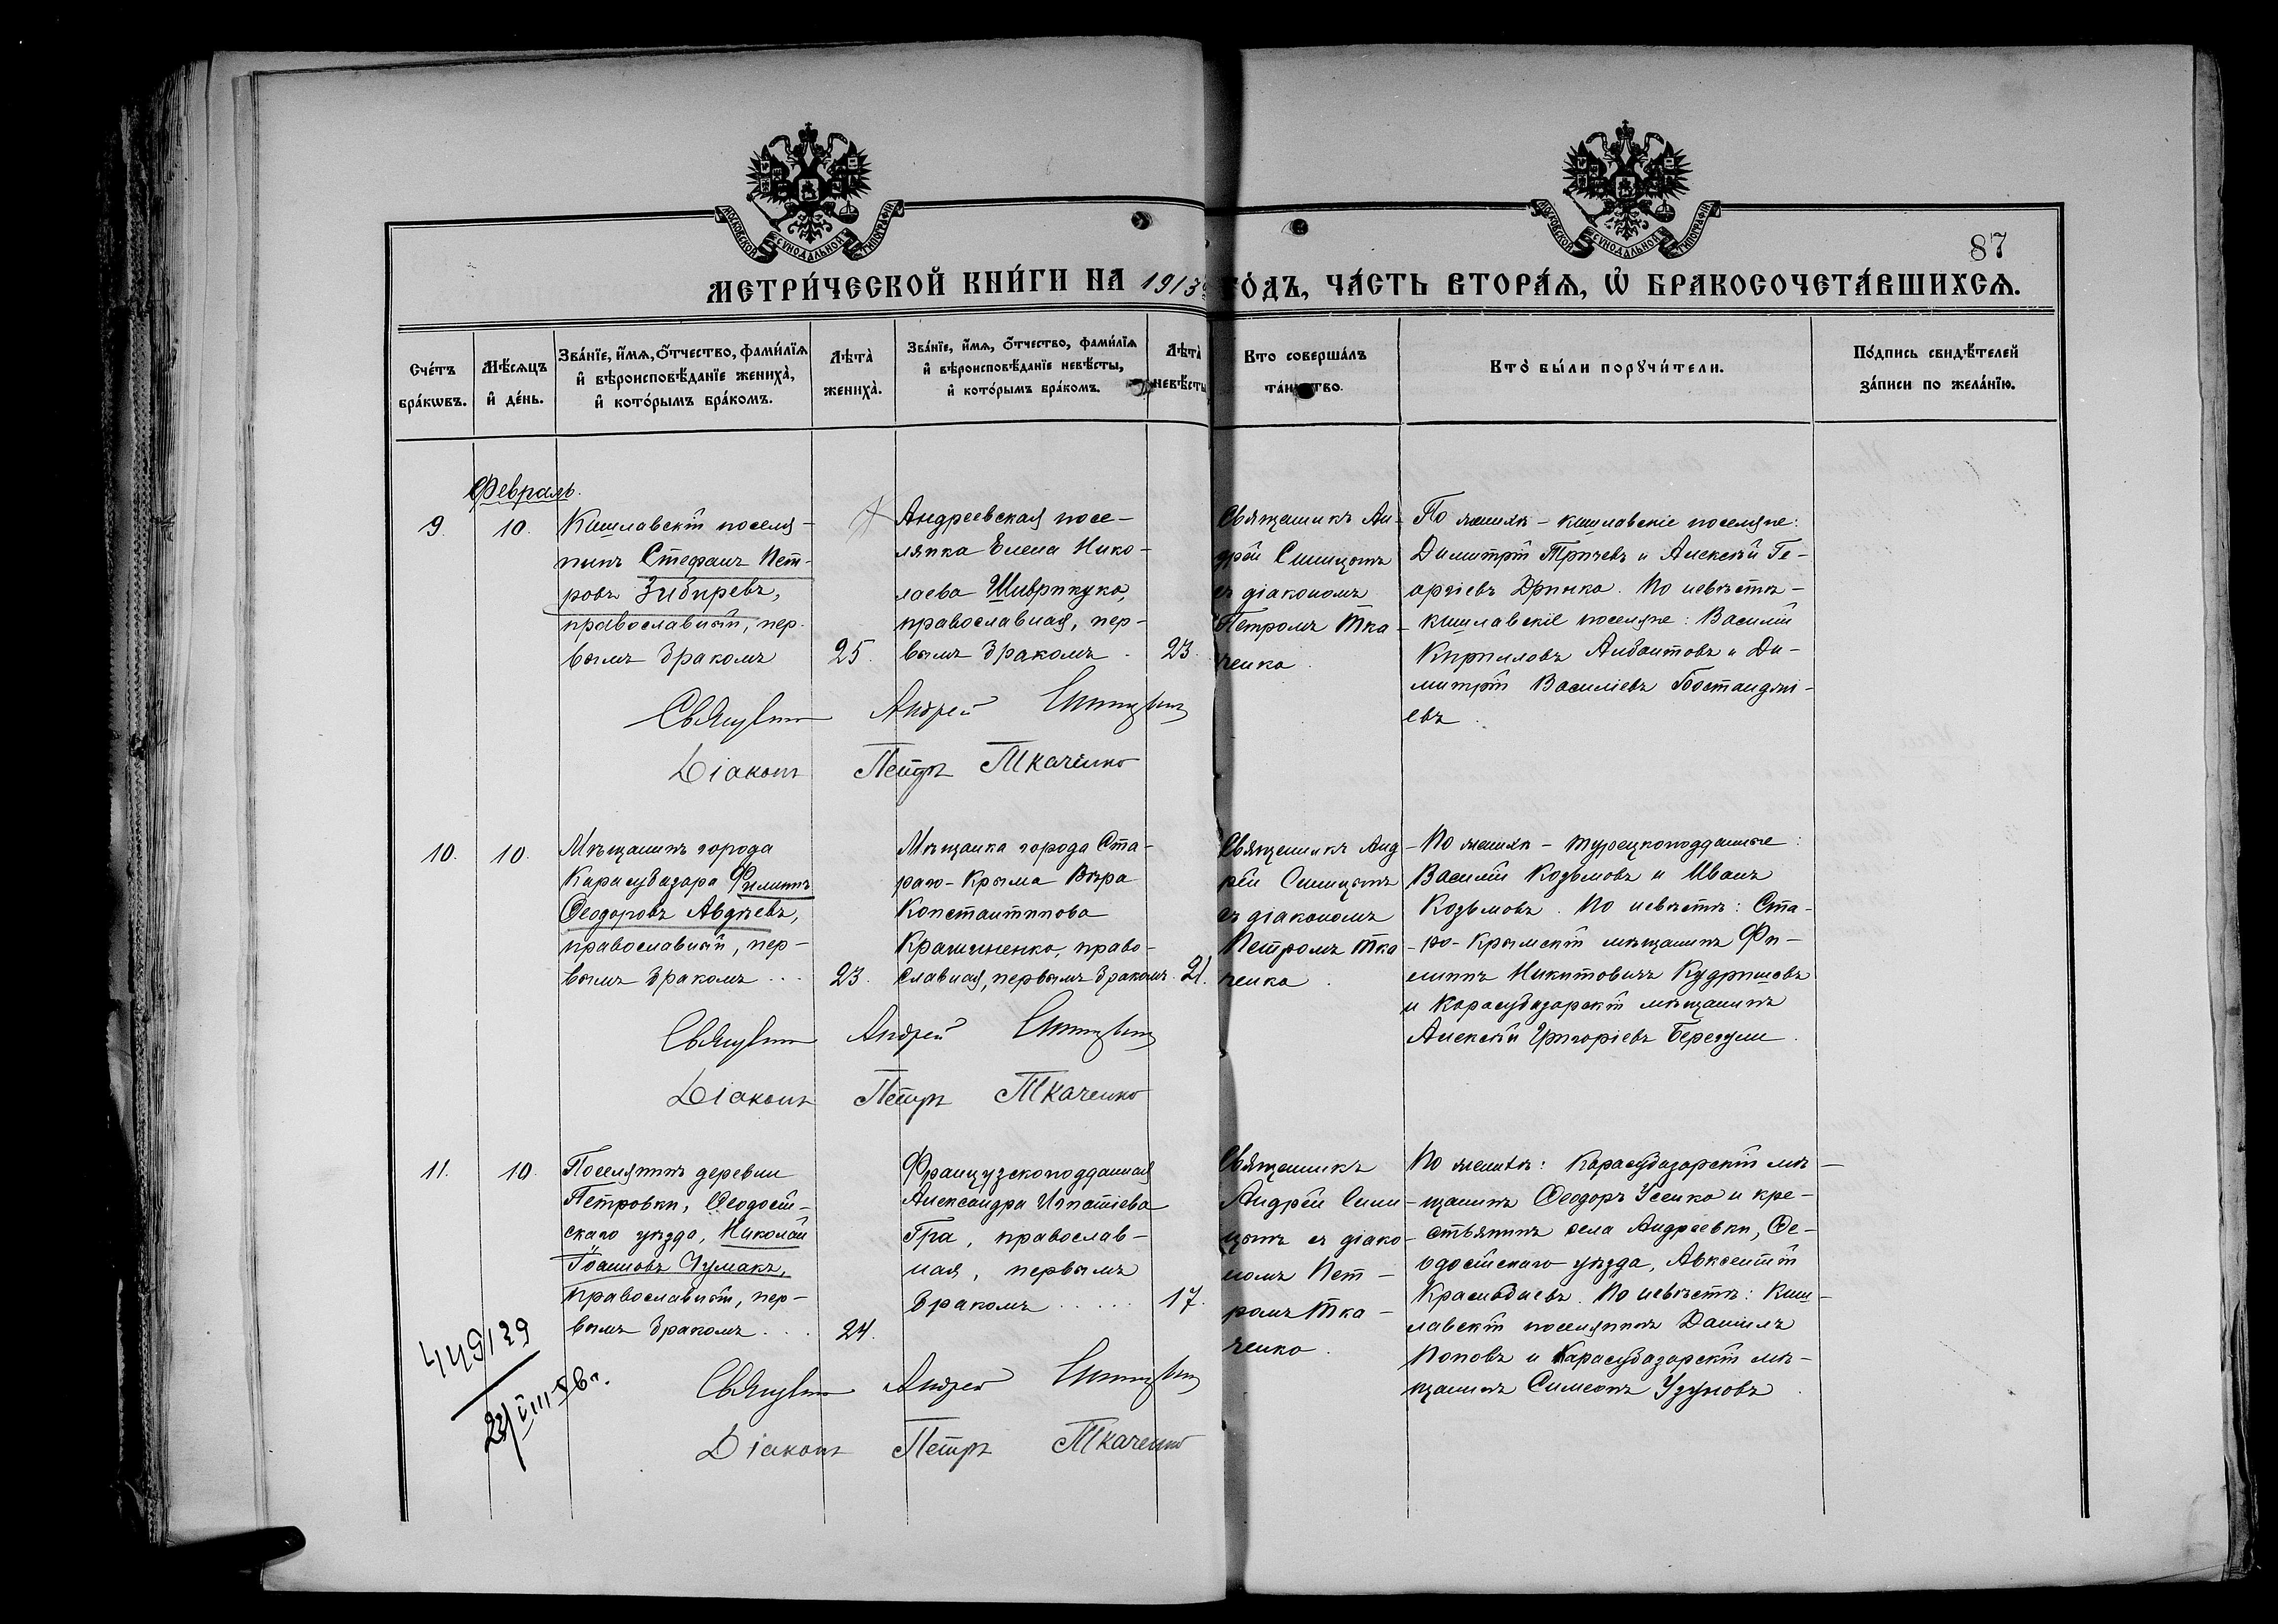 МОСКОВСКОЙ СѴНОДАЛЬНОЙ ТИПОГРАФІИ
МОСКОВСКОЙ СѴНОДАЛЬНОЙ ТИПОГРАФІИ
87
МЕТРИ́ЧЕСКОЙ КНИ́ГИ НА 1913 ГО́ДЪ, ЧА́СТЬ ВТОРА́Ѧ, Ѡ҆ БРАКОСОЧЕТА́ВШИХСѦ.
Сче́тъ бра́кѡвъ.
Мѣ́сѧцъ и҆ де́нь.
Зва́нїе, и҆́мѧ, ѻ҆́тчество, фами́лїѧ
и҆ вѣроисповѣ́данїе жениха̀,
и҆ кото́рымъ бра́комъ.
Лѣта̀ жениха̀.
Зва́нїе, и҆́мѧ, ѻ҆́тчество, фами́лїѧ
и҆ вѣроисповѣ́данїе невѣ́сты,
и҆ кото́рымъ бра́комъ.
Лѣта̀ невѣ́сты
Кто соверша́лъ
та́инство.
Кто̀ бы́ли порꙋчи́тели.
По́дпись свидѣ́телей
за́писи по жела́нїю.
Февраль.
9. 10.
Кишлавскій поселя-
нинъ Стефанъ Пет-
ровъ Зибиревъ,
православный, пер-
вымъ бракомъ
25.
Андреевская посе-
лянка Елена Нико-
лаева Шиврикуко,
православная, пер-
вымъ бракомъ .
23.
Священникъ Ан-
дрей Синицынъ
съ діакономъ
Петромъ Тка-
ченко .
По женихѣ - кишлавскіе поселяне:
Димитрій Тричевъ и Алексѣй Ге-
оргіевъ Дринка. По невѣстѣ -
кишлавскіе поселяне: Василій
Кирилловъ Анбаитовъ и Ди-
митрій Василіевъ Бостанджі-
евъ .
Священникъ Андрей Синицынъ
Діаконъ Петръ Ткаченко
10. 10.
Мѣщанинъ города
Карасубазара Филиппъ
Ѳеодоровъ Авдѣевъ,
православный, пер-
вымъ бракомъ ...
23.
Мѣщанка города Ста-
раго-Крыма Вѣра
Константинова
Крашиненко, право-
славная, первымъ бракомъ.
21.
Священникъ Анд-
рей Синицынъ
съ діакономъ
Петромъ Тка-
ченко .
По женихѣ - турецкоподданные:
Василій Козьмовъ и Иванъ
Козьмовъ. По невѣстѣ: Ста-
ро-Крымскій мѣщанинъ Фи-
липпъ Никитовичъ Кудришовъ
и Карасубазарскій мѣщанинъ
Алексѣй Григоріевъ Березули .
Священникъ Андрей Синицынъ
Діаконъ Петръ Ткаченко
11. 10.
Поселянинъ деревни
Петровки, Ѳеодосій-
скаго уѣзда, Николай
Іоанновъ Чумакъ,
православный, пер-
вымъ бракомъ ...
24.
Французскоподданная
Александра Игнатіева
Гра, православ-
ная, первымъ
бракомъ .....
17.
Священникъ
Андрей Сини-
цынъ съ діако-
номъ Пет-
ромъ Тка-
ченко .
По женихѣ: Карасубазарскій мѣ-
щанинъ Ѳеодоръ Усенко и кре-
стьянинъ села Андреевки, Ѳе-
одосійскаго уѣзда, Авксентій
По невѣстѣ: Киш-
лавскій поселянинъ Даніилъ
Поповъ и Карасубазарскій мѣ-
щанинъ Симеонъ Узуновъ .
Священникъ Андрей Синицынъ
Діаконъ Петръ Ткаченко